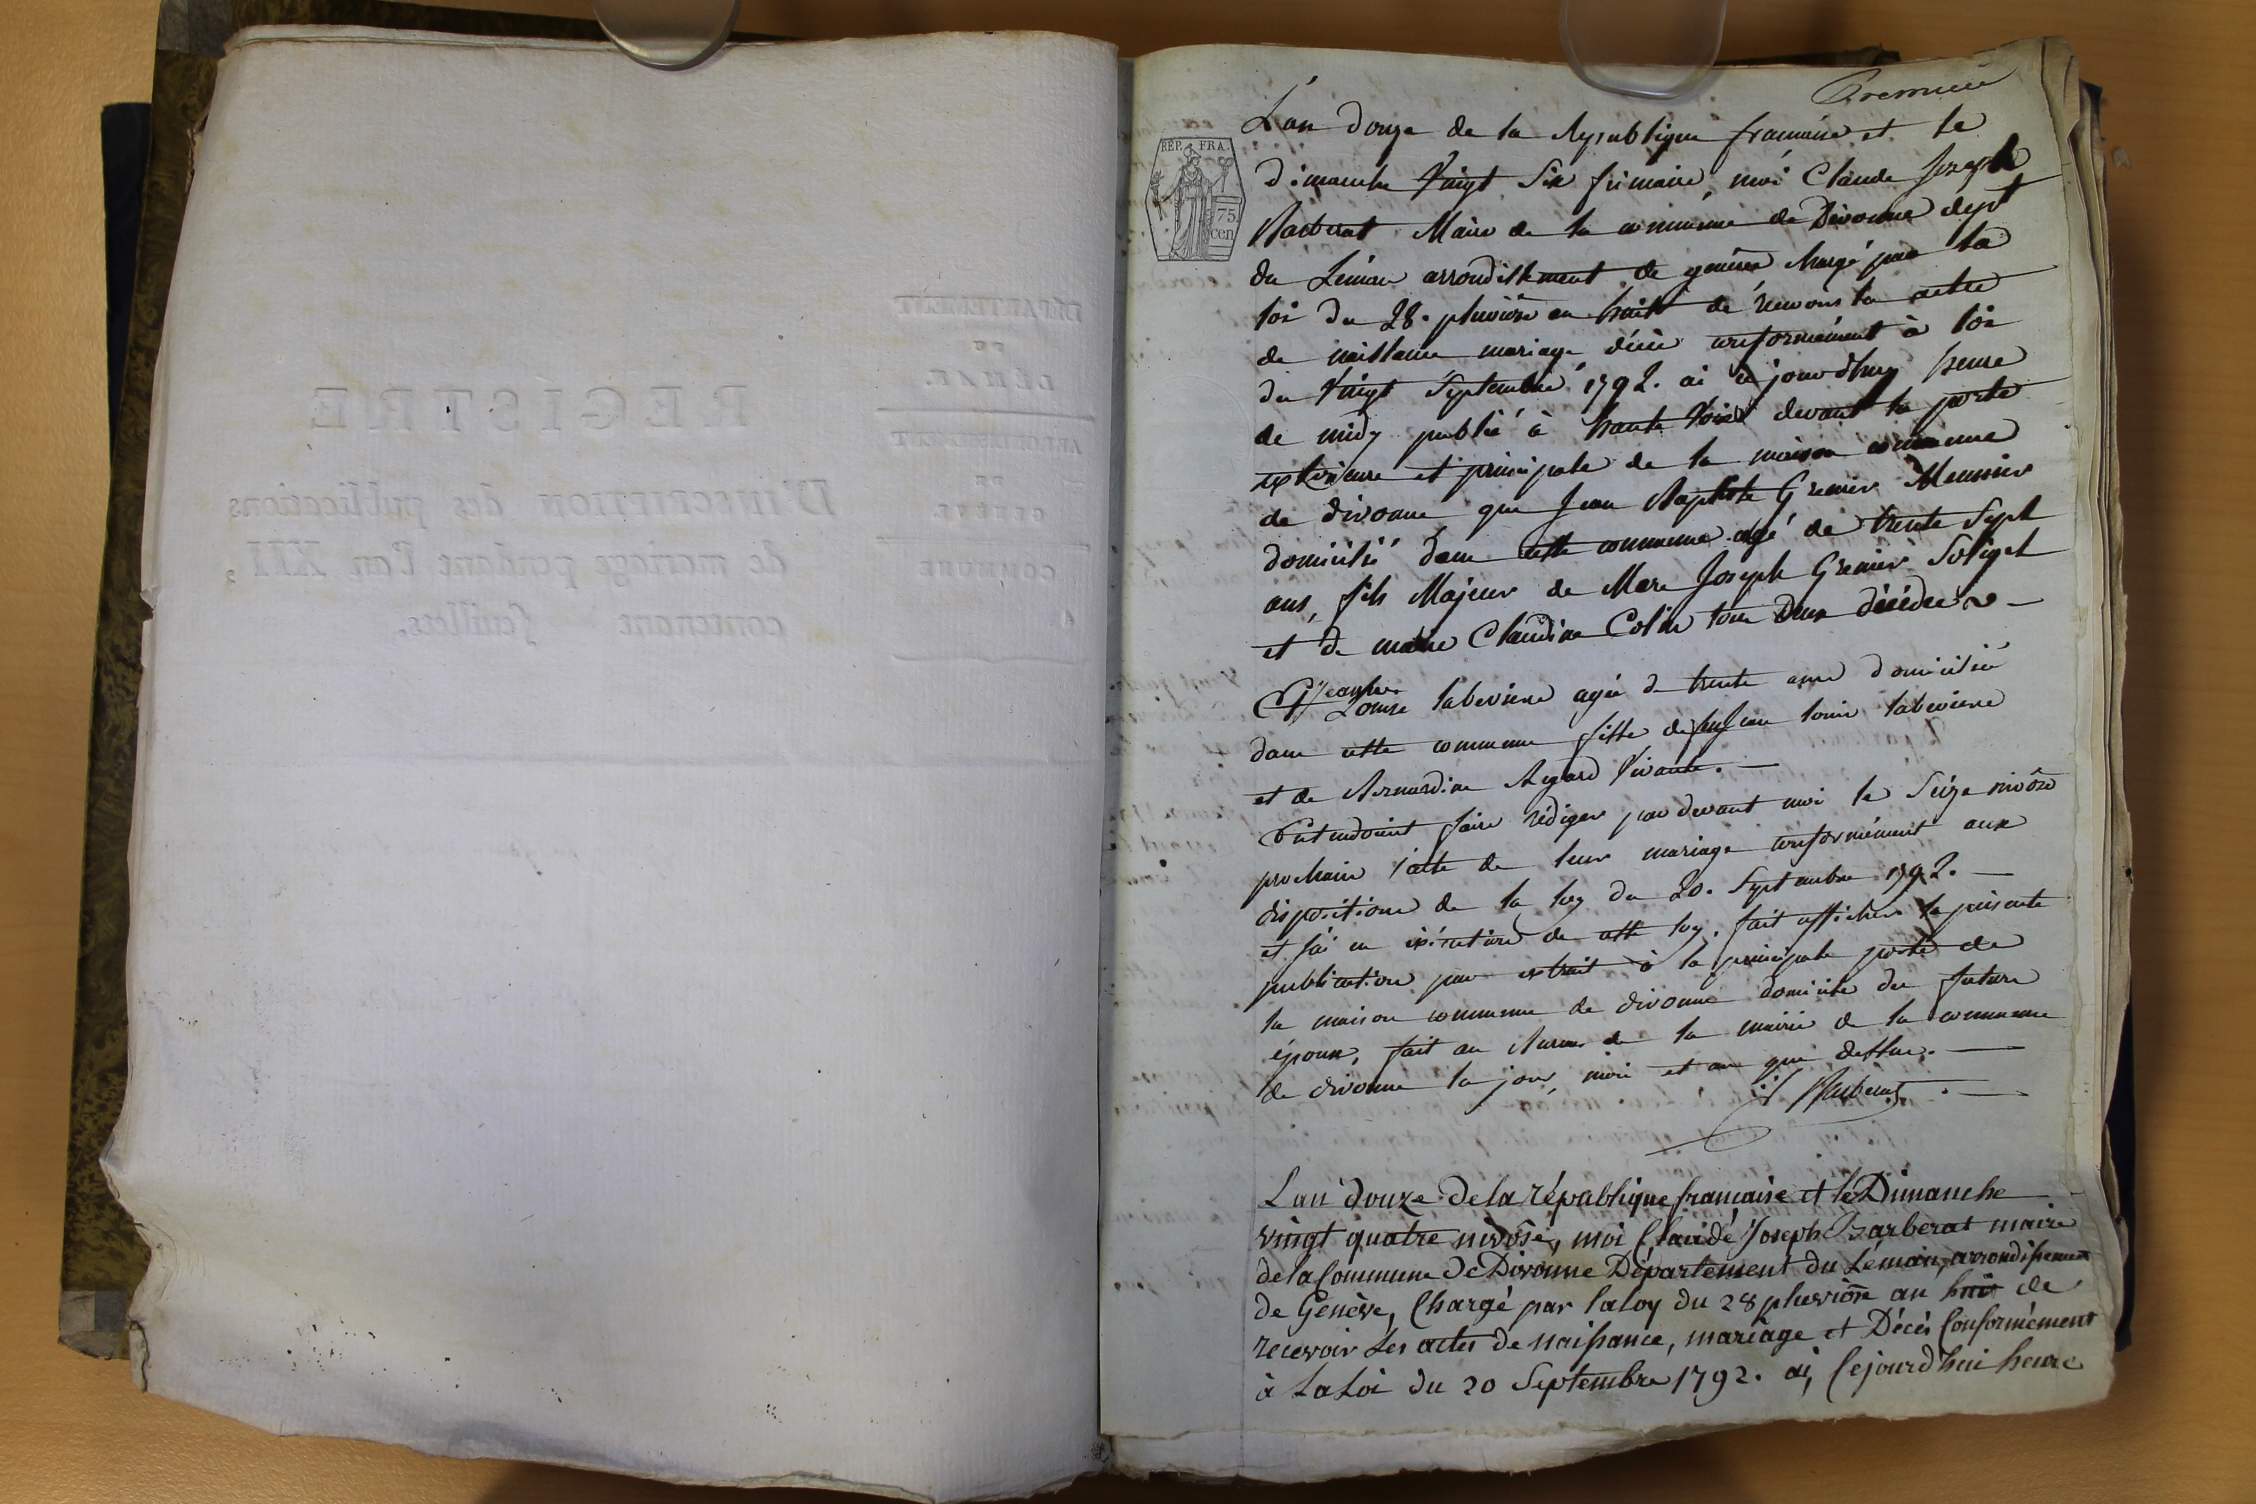 DÉPARTEMENT
DU
LÉMAN.
ARRONDISSEMENT
DE
GENÈVE.
COMMUNE
REGISTRE
D'INSCRIPTION des publications
de mariage pendant l'an XII,
contenant feuillets.
Premiere
RÉP. FRA.
75
cen
L'an douze de la République francaise et le
dimanche Vingt Six frimaire, moi Claude Joseph
Barberat Maire de la commune de Divonne dept
du Léman arrondissement de genève chargé par la
loi du 28. pluviôse an huit de recevoir les actes
de naissance mariage décès conformément à loi
du Vingt Septembre 1792. ai ce jourd'huy heure
de midy publié à haute Voix devant la porte
extérieure et principale de la maison commune
de divonne que Jean Baptiste Grenier Meunier
domicilié dans cette commune agé de trente Sept
ans, fils Majeur de Marc Joseph Grenier
et de Claudine Colin tous deux décédés
Et Jeanne
Louise laberiere agée de trente ans domiciliée
dans cette commune fille de feu Jean louis laberiere
et de Bernardine Regard Vivante.
Entendoient faire rédiger par devant moi le Seize nivôse
prochain l'acte de leur mariage conformément aux
dispositions de la loy du 20. Septembre 1792.
et j'ai en exécution de cette loy, fait afficher la présente
publication par extrait à la principale porte de
la maison commune de divonne domicile du future
époux, fait au Bureau de la mairie de la commune
de divonne les jour, mois et an que dessus.
Barberat
L'an douze de la république francaise et le Dimanche
vingt quatre nivôse, moi Claude Joseph Barberat maire
de la Commune de Divonne Département du Léman, arrondissement
de Genève, Chargé par la loy du 28 pluviôse an huit de
recevoir les actes de naissance, mariage et Décès Conformément
à La Loi du 20 Septembre 1792. ai, Cejourd'hui heure